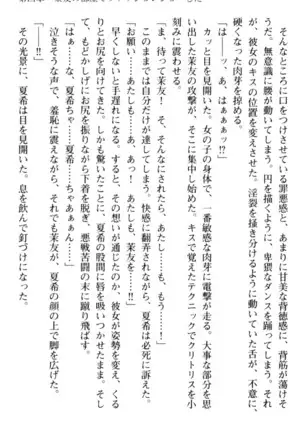 そんなところに口をつけさせている罪悪感と、あまりに甘美な背徳感に、背筋が蕩けそ
うだ。無意識に腰が動いてしまう。円を描くように、卑猥なダンスを踊ってしまう。それ
が、彼女のキスの位置を変えさせた。淫裂を掻き分けるように動いていた舌が、不意に、
硬くなった肉芽を掠める。
「は、あ、はぁぁッ!?」
カッと目を見開いた。女の子の身体で、一番敏感な肉芽に電撃が走る。大事な部分を思
い出した茉友の攻撃が、そこに集中し始めた。キスで覚えたテクニックでクリトリスを小
刻みに震わせる。
「ま、待って茉友! そ、そんなにされたら、あたし……あたし……も、もう……!」
このままでは自分だけが達してしまう。快感に翻弄されながら、夏希は必死に訴えた。
「あたしも……あ、あっ! あたしも、茉友を……あ、あっ!」
早くしないと手遅れになる。すると、その想いが通じたのか、彼女が姿勢を変え、くる
りとお尻を向けた。しかも驚いたことに、夏希の股間に唇を吸いつかせたまま。そし
て、もどかしげにお尻を振りながら下着を脱ぎ、悪戦苦闘の末に蹴り飛ばす。
「はぁ……な、夏希……夏希ちゃ……ちゃあぁぁん……」
泣きそうな声で、羞恥に震えながら、それでも茉友は、夏希の顔の上で脚を広げた。
その光景に、夏希は目を見開いた。息を飲んで釘づけになった。